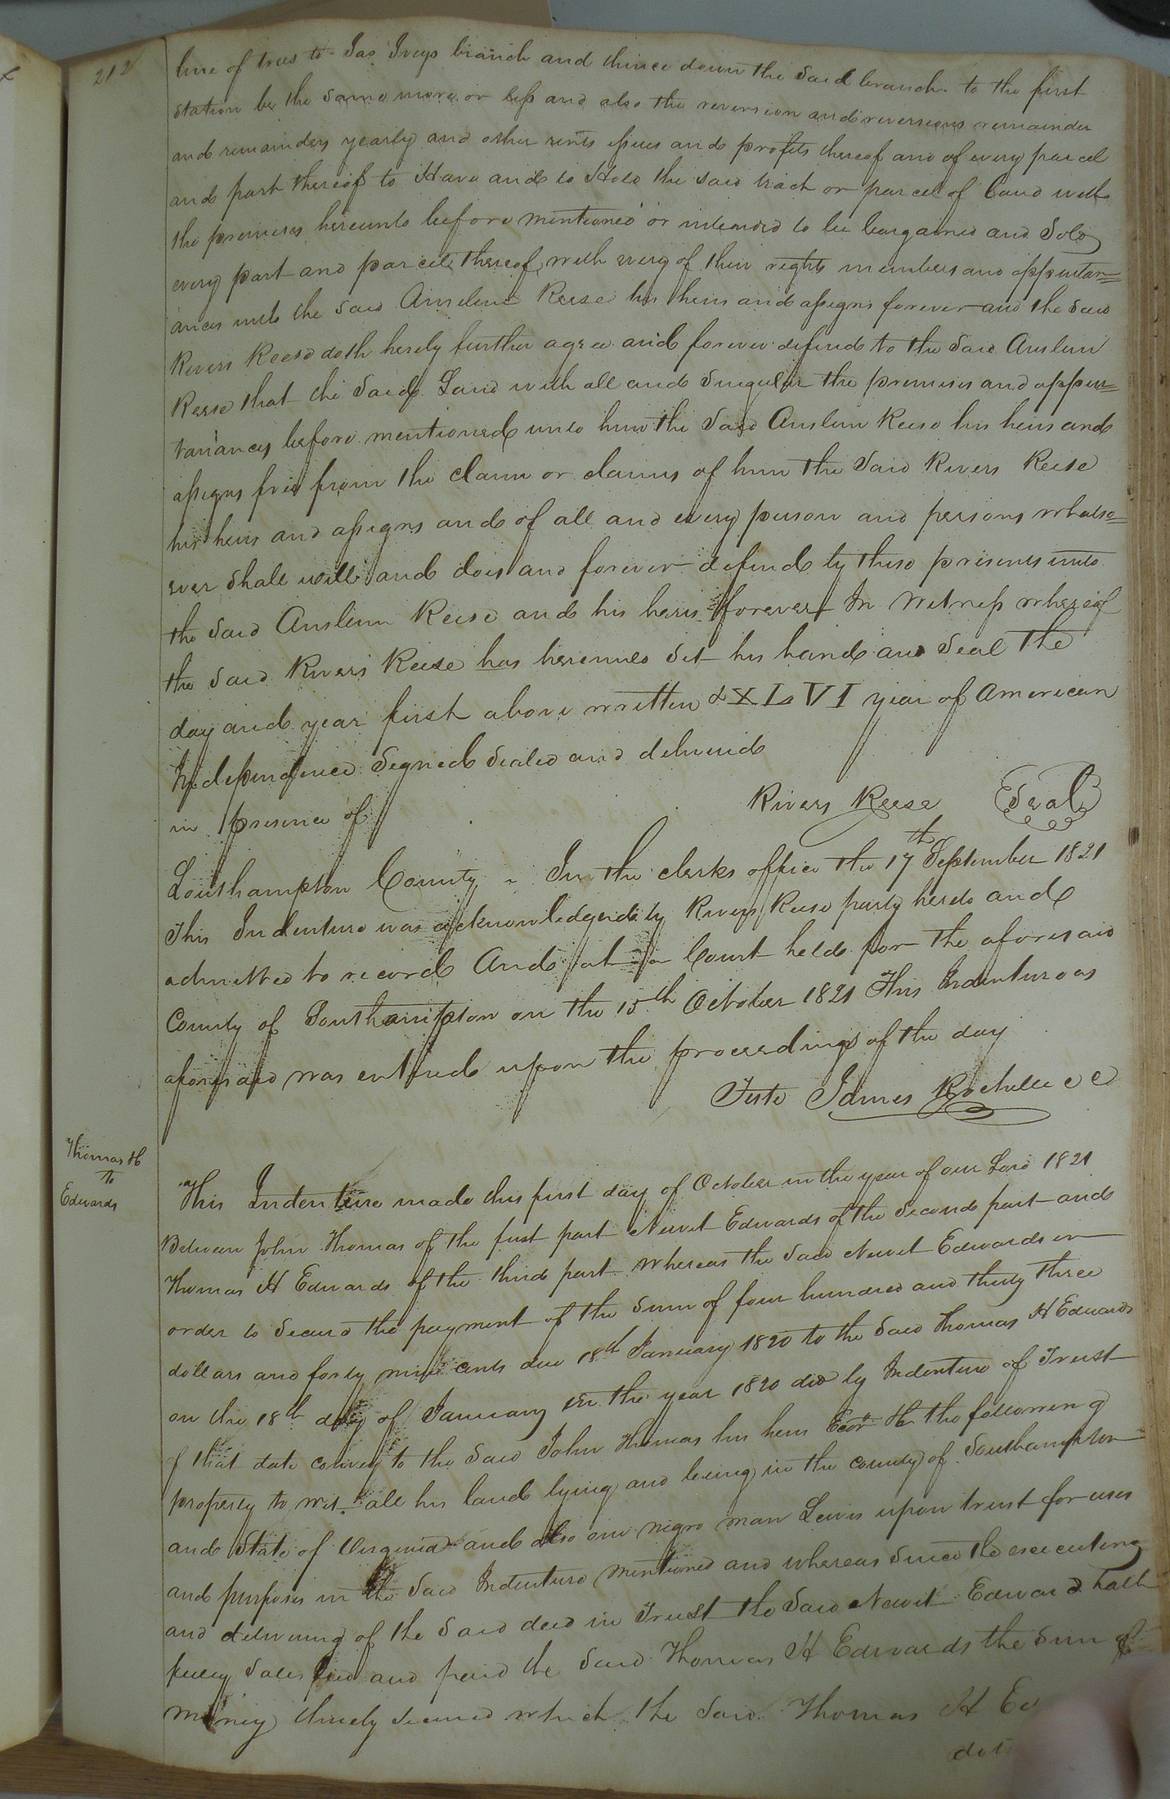 212
line of trees to Jas Iveys branch and thence down the said branch to the first
station be the same more or less and also the reversion and reversions remainder
and remainders yearly and other rents issues and profits thereof and of every parcel
and part thereof to Have and to Hold the said tract or parcel of Land with
the premises hereunto before mentioned or intended to be bargained and Sold
every part and parcel thereof with every of their rights members and appurten=
ances unto the said Anselm Reese his heirs and assigns forever and the said
Rivers Reese doth hereby further agree and forever defend to the said Anselm
Reese that the said Land with all and Singular the premises and appur=
tanances before mentioned unto him the said Anselm Reese his heirs and
assigns free from the claim or claims of him the said Rivers Reese
his heirs and assigns and of all and every person and persons whatso=
ever shall will and does and forever defend by these presents unto
the said Anselm Reese and his heirs forever In Witness whereof
the said Rivers Reese has hereunto set his hand and Seal the
day and year first above written & XLVI year of American
Independence Signed Sealed and delivered
in presence of
Rivers Reese Seal
Southampton County - In the clerks office the 17th September 1821
This Indenture was acknowledged by Rivers Reese party hereto and
admitted to record And at a Court held for the aforesaid
County of Southampton on the 15th October 1821 This Indenture as
aforesaid was entered upon the proceedings of the day
Teste James Rochelle cc
Thomas H
To
Edwards
This Indenture made this first day of October in the year of our Lord 1821
Between John Thomas of the first part Newit Edwards of the Second part and
Thomas H Edwards of the third part Whereas the said Newit Edwards in
order to secure the payment of the Sum of four hundred and thirty three
dollars and forty nine cents due 18th January 1820 to the said Thomas H Edwards
on the 18th day of January in the year 1820 did by Indenture of Trust
of that date convey to the said John Thomas his heirs Exor &c the following
property to wit all his land lying and being in the county of Southampton
and State of Virginia and also one negro man Lewis upon trust for uses
and purposes in the said Indenture mentioned and whereas since the executing
and delivering of the said deed in Trust the said Newit Edwards hath
fully satisfied and paid the said Thomas H Edwards the Sum of
money thereby secured which the said Thomas H Ed